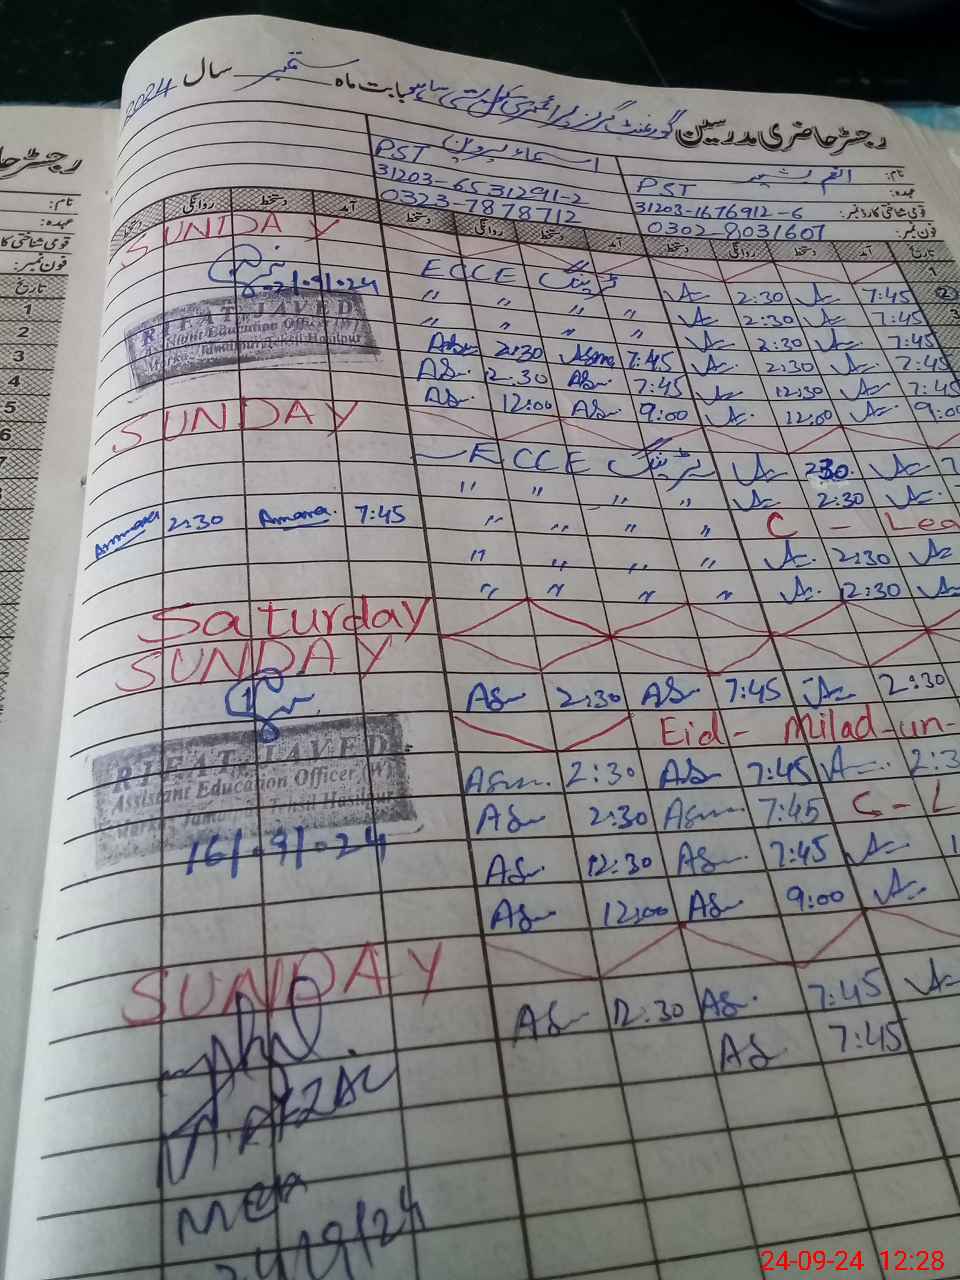 رجسٹر حاضری مدرسین گورنمنٹ گرلز پرائمری سکول بابت ماہ ستمبر سال 2024
نام: انعم بشیر اسماء پروین
عہدہ: PST PST
قومی شناختی کارڈ نمبر: 31203-1676912-6 31203-6531291-2
فون نمبر: 0302-8031607 0323-7878712
تاریخ آمد دستخط روانگی دستخط آمد دستخط روانگی دستخط آمد دستخط روانگی دستخط
1 SUNDAY
7:45 2:30 ECCE ٹریننگ 2/9/24
3 7:45 2:30 " " " "
7:45 2:30 " " " "
RIFAT JAVED
Assistant Education Officer (W)
7:45 2:30 7:45 Asma 2:30 Asma
7:45 12:30 7:45 AS 2:30 AS
9:00 12:00 9:00 AS 12:00 AS
SUNDAY
2:30 ECCE ٹریننگ
2:30 " " " "
C - Lea " " " " 7:45 Ammara 2:30 Ammara
2:30 " " " "
2:30 " " " "
Saturday
SUNDAY
2:30 7:45 AS 2:30 AS
Eid - Milad-un-
2:3 7:45 AS 2:30 Asm
RIFAT JAVED
Assistant Education Officer (W)
C - L 7:45 Asm 2:30 AS
16/9/24
7:45 AS 12:30 AS
9:00 AS 12:00 AS
SUNDAY
7:45 AS 12:30 AS
7:45 AS
M. AFZAL
MEA
24/9/24
رجسٹر حا
نام:
عہدہ:
قومی شناختی کا
فون نمبر:
تاریخ
1
2
3
4
5
6
7
24-09-24 12:28